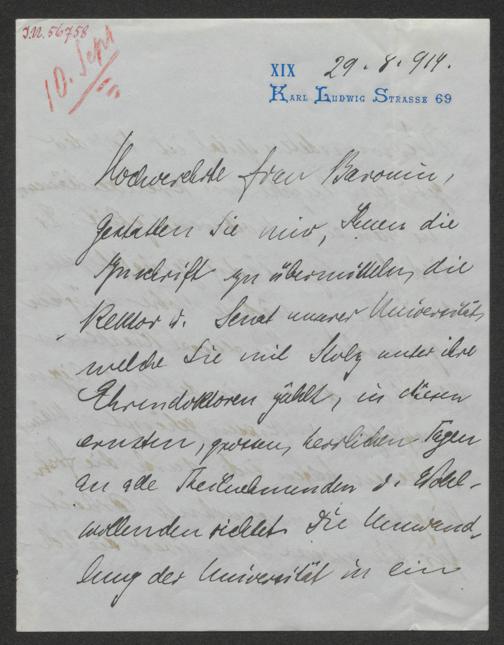 J.N. 56758
10. Sept
XIX 29.8.914.
KARL LUDWIG STRASSE 69
Hochverehrte Frau Baronin,
gestatten Sie mir, Ihnen die
Zuschrift zu übermitteln, die
Rektor u. Senat unserer Universität,
welche Sie mit Stolz unter ihre
Ehrendoktoren zählt, in diesen
ernsten, grossen, herrlichen Tagen
an alle Theilnehmenden u. Wohl-
wollenden richtet. Die Umwand-
lung der Universität in ein